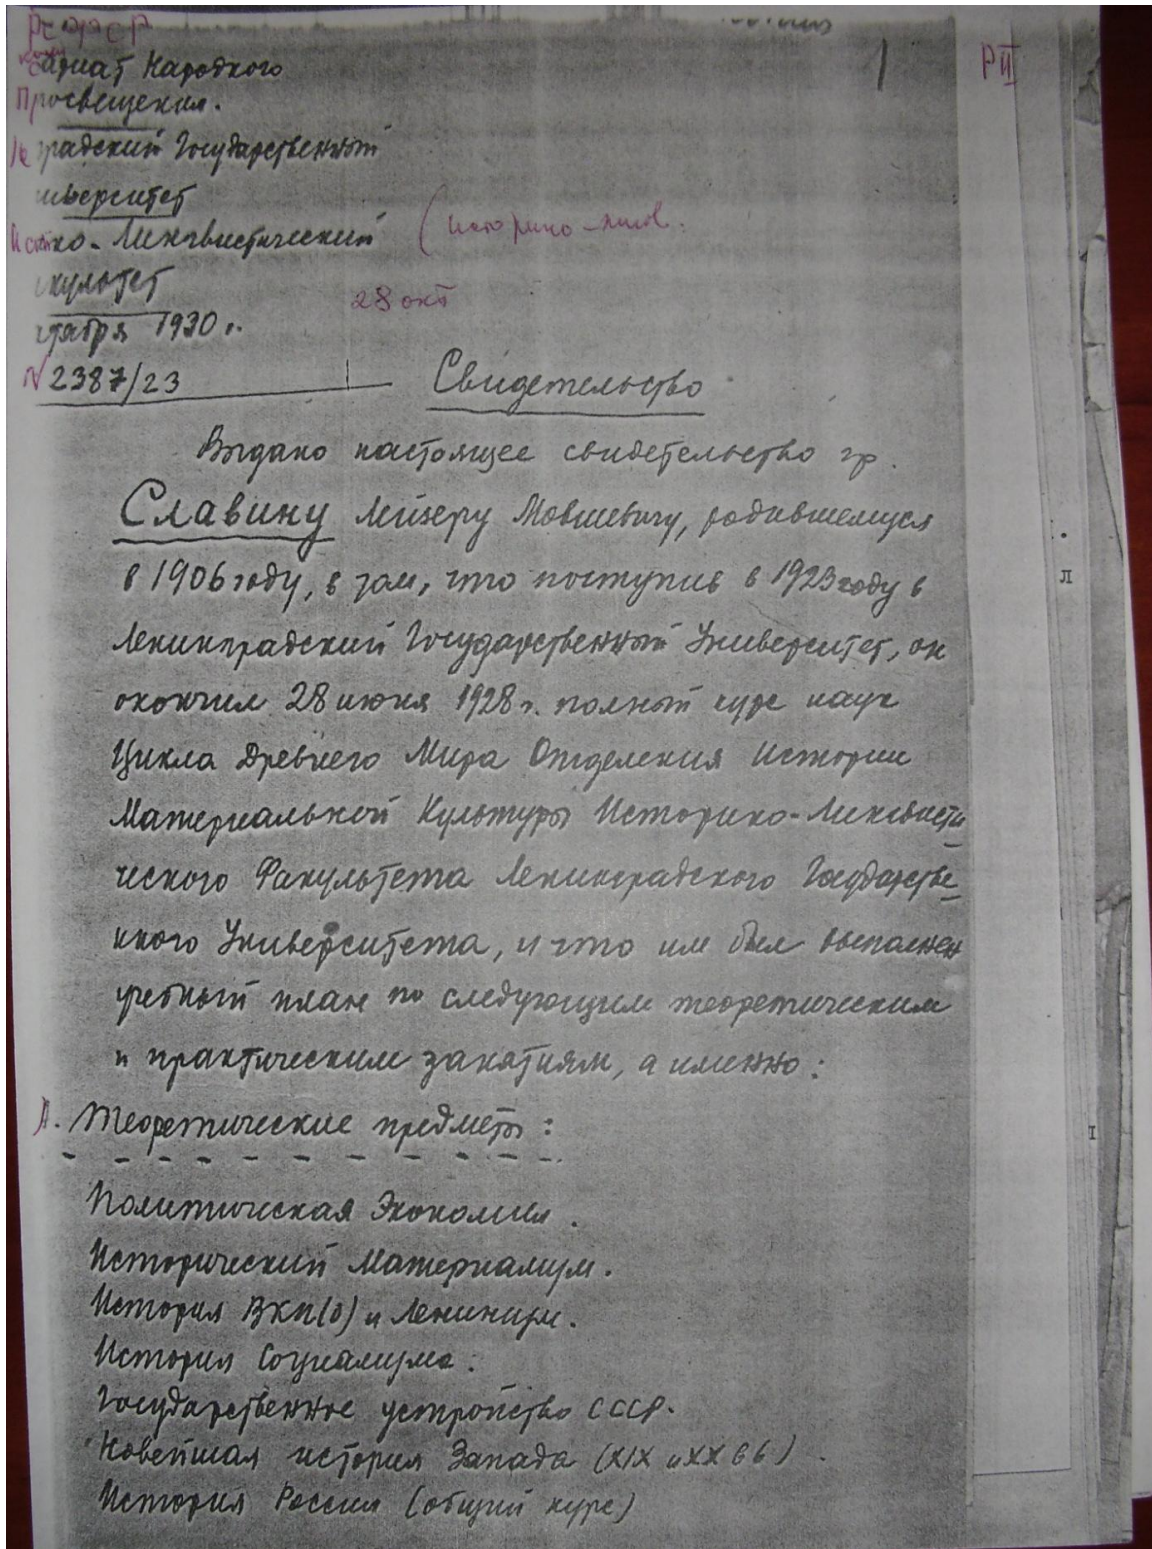 РСФСР
сариат Народного
Просвещения.
градский Государственный
иверситет
Ист ко-Лингвистический (историко-лингв.
культет
28 окт
ктября 1930 г.
№2387/23
Свидетельство
Выдано настоящее свидетельство гр.
Славину Лейзеру Мовшевичу, родившемуся
в 1906 году, в том, что поступив в 1923 году в
Ленинградский Государственный Университет, он
окончил 28 июня 1928 г. полный курс наук
Цикла Древнего Мира Отделения Истории
Материальной Культуры Историко-Лингвисти
ческого Факультета Ленинградского Государстве-
нного Университета, и что им был выполнен
учебный план по следующим теоретическим
и практическим занятиям, а именно:
А. Теоретические предметы:
Политическая Экономия.
Исторический Материализм.
История ВКП(б) и Ленинизм.
История Социализма.
Государственное устройство СССР.
Новейшая история Запада (XIX и XX вв)
История России (общий курс)
1
РII
л
I